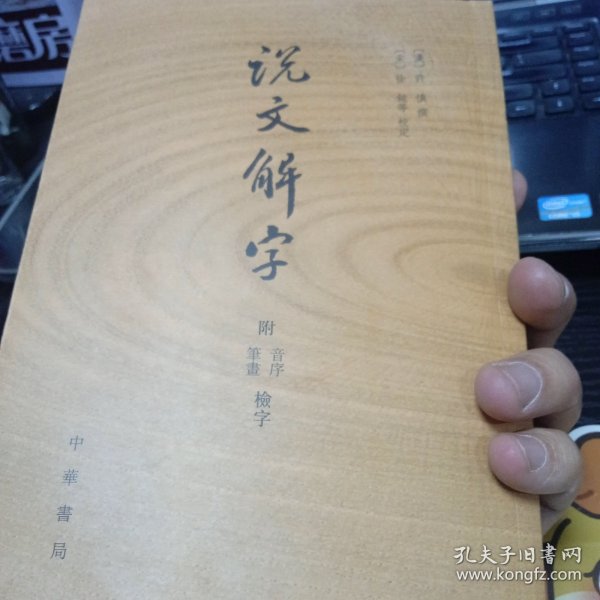 [漢]許慎撰
[宋]徐鉉等校定
说文解字
附
音序
筆畫
檢字
中華書局
intel
CORE i3
孔夫子旧书网
www.kongfz.com